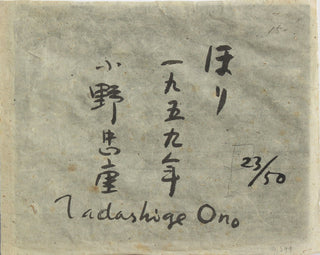 ほり
一九五九年
小野忠重
23/50
Tadashige Ono